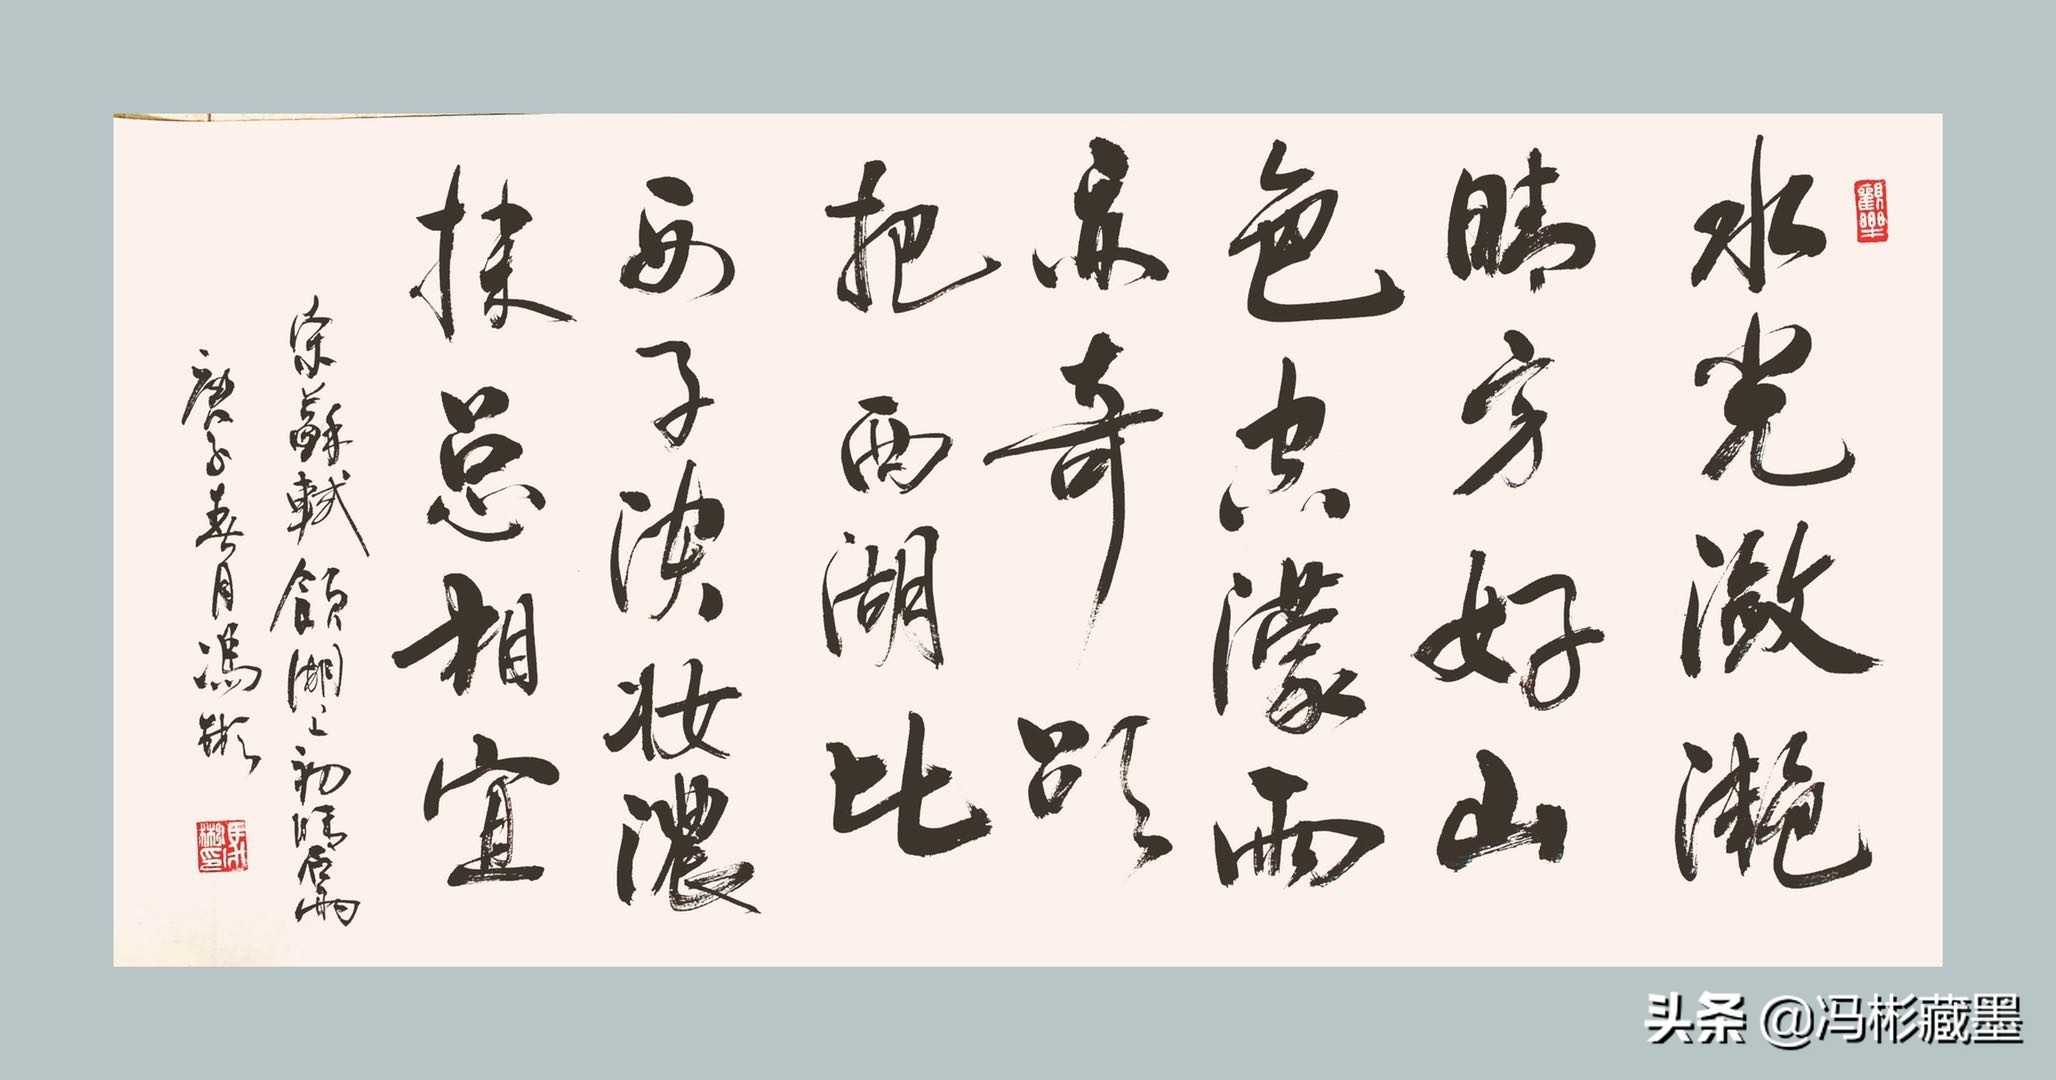 水光潋滟
晴方好山
色空濛雨
亦奇欲
把西湖比
西子淡妆濃
抹总相宜
宋蘇軾飲湖上初晴后雨
庚子春月馮彬
头条 @冯彬藏墨